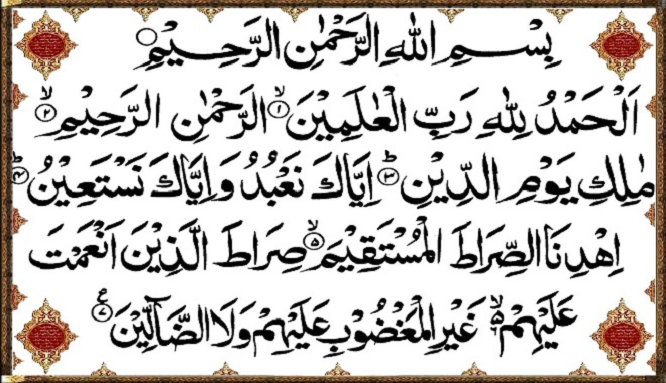 بِسْمِ اللهِ الرَّحْمٰنِ الرَّحِيْمِ
اَلْحَمْدُ لِلّٰهِ رَبِّ الْعٰلَمِيْنَ ۙ۱ الرَّحْمٰنِ الرَّحِيْمِ ۙ۲
مٰلِكِ يَوْمِ الدِّيْنِ ؕ۳ اِيَّاكَ نَعْبُدُ وَاِيَّاكَ نَسْتَعِيْنُ ؕ۴
اِهْدِنَا الصِّرَاطَ الْمُسْتَقِيْمَ ۙ۵ صِرَاطَ الَّذِيْنَ اَنْعَمْتَ
عَلَيْهِمْ ۙ۬ غَيْرِ الْمَغْضُوْبِ عَلَيْهِمْ وَلَا الضَّآلِّيْنَ ۷ع